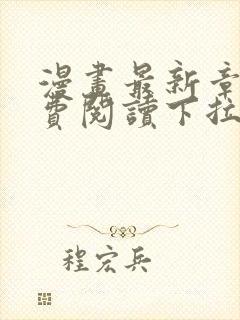 漫畫最新章
費閱讀下拉
程宏兵